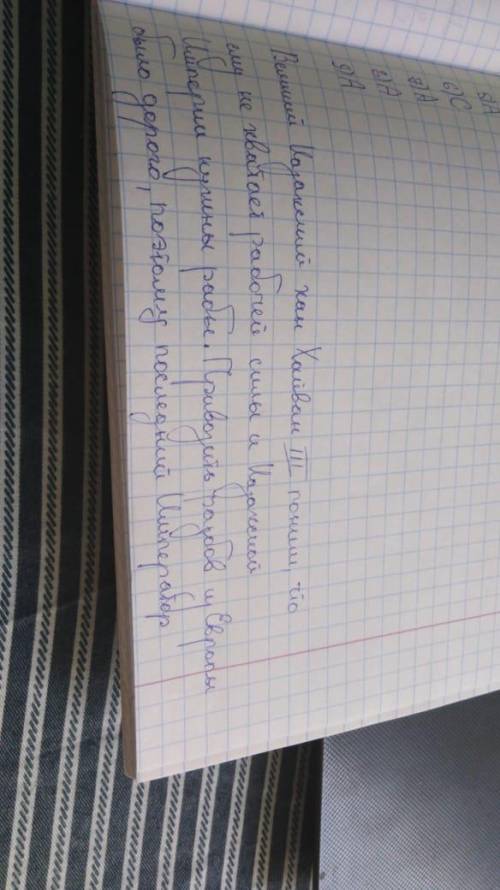 5)A
6)C
7)A
8)A
9)A
Великий Казахский хан Хайван III понял, что
ему не хватает рабочей силы и Казахской
Империи нужны рабы. Привозить рабов из Европы
было дорого, поэтому последний Император